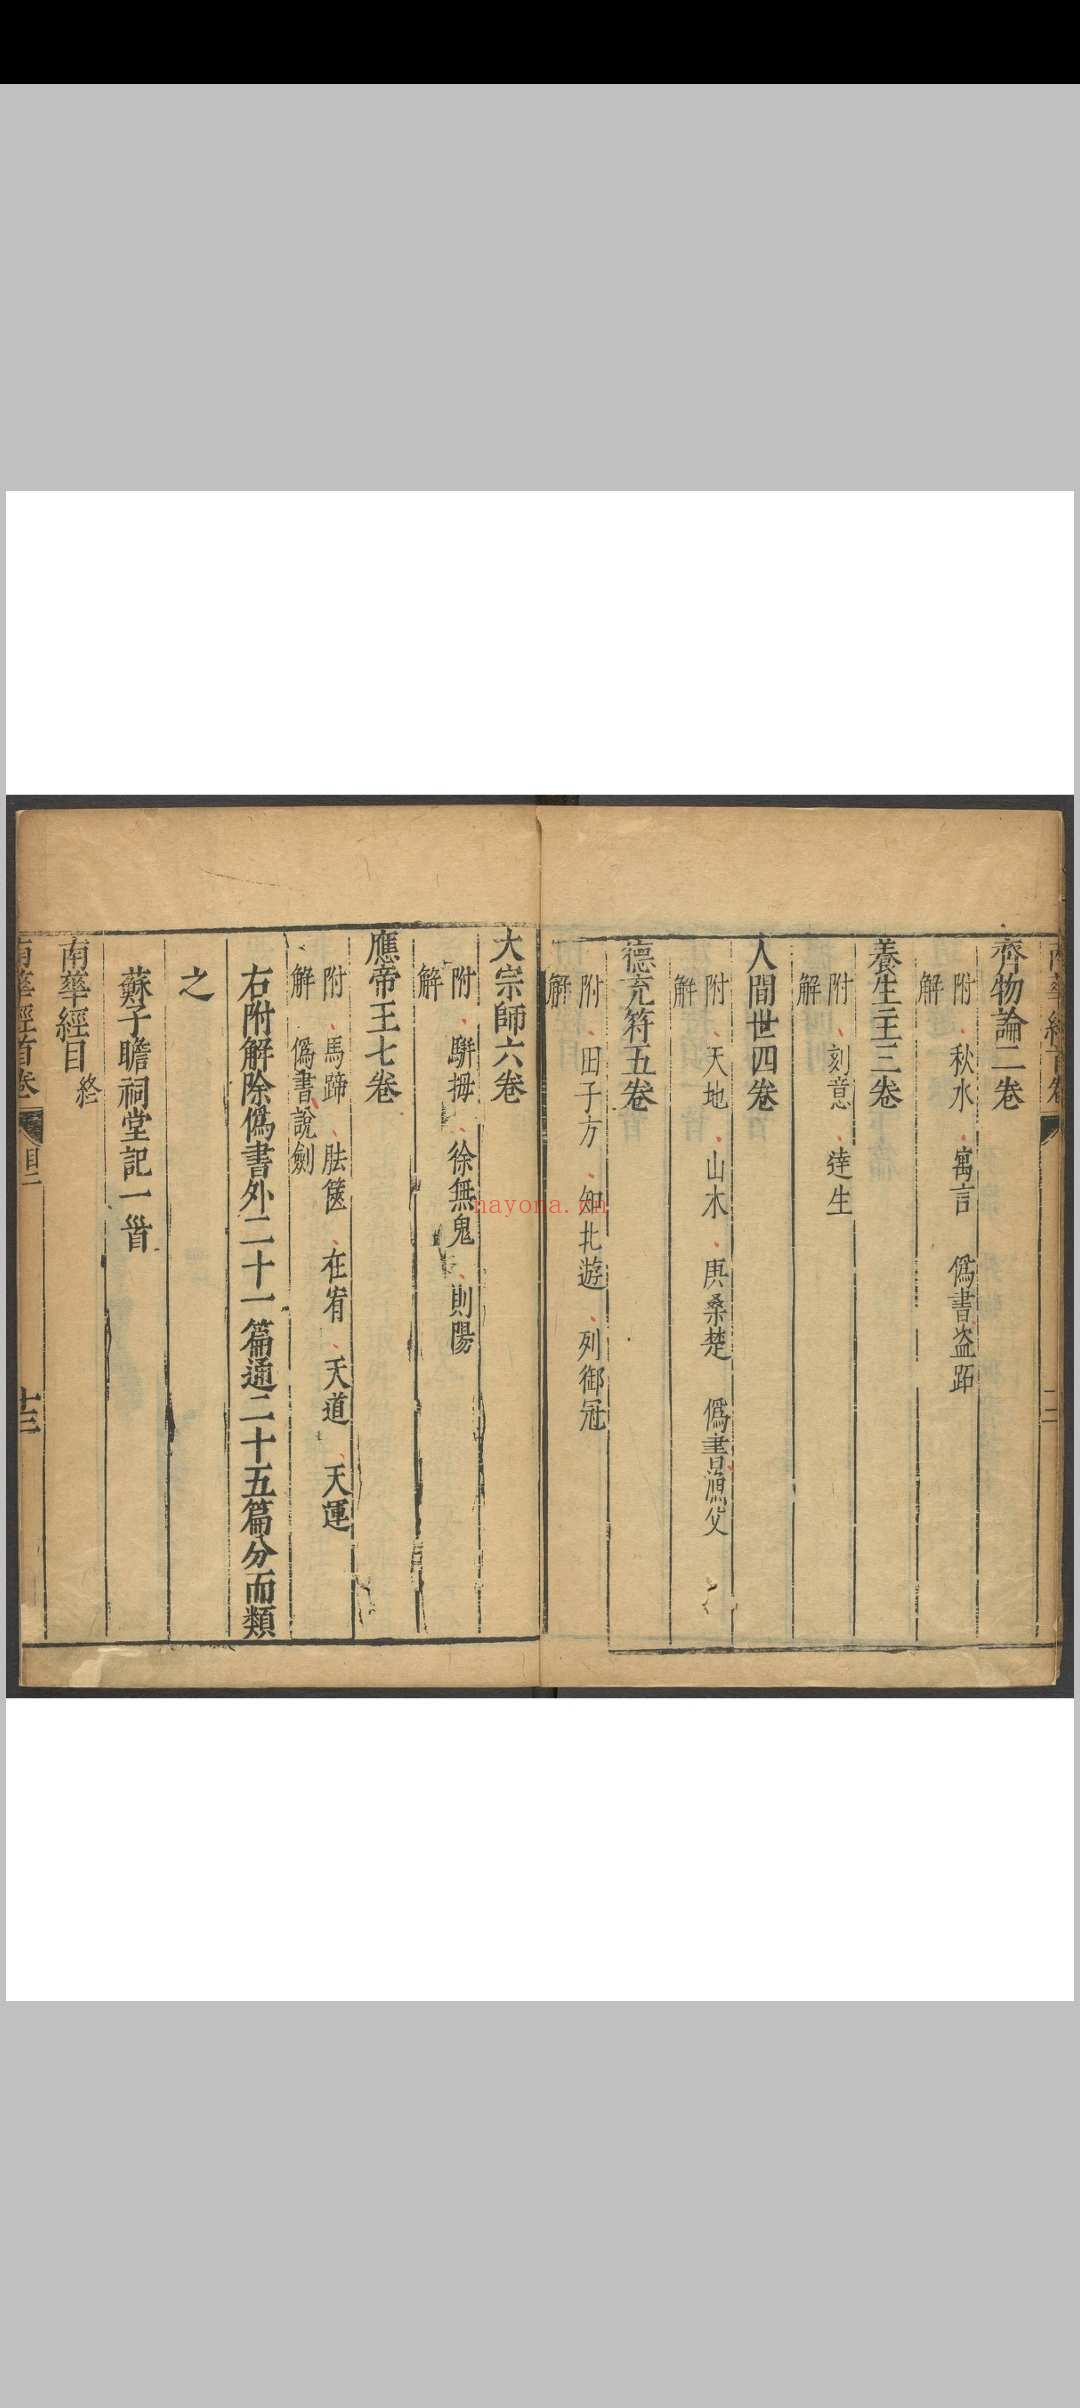 齊物論二卷
附 秋水 寓言 僞書盗跖
解
養生主三卷
附 刻意 達生
解
人間世四卷
附 天地 山木 庚桑楚 僞書漁父
解
德充符五卷
附 田子方 知北遊 列御冦
解
大宗師六卷
附 駢拇 徐無鬼 則陽
解
應帝王七卷
附 馬蹄 胠篋 在宥 天道 天運
解 僞書說劍
右附解除僞書外二十一篇通二十五篇分而類
之
蘇子瞻祠堂記一首
南華經目終
南華經首卷 目二
十三
nayona.cn